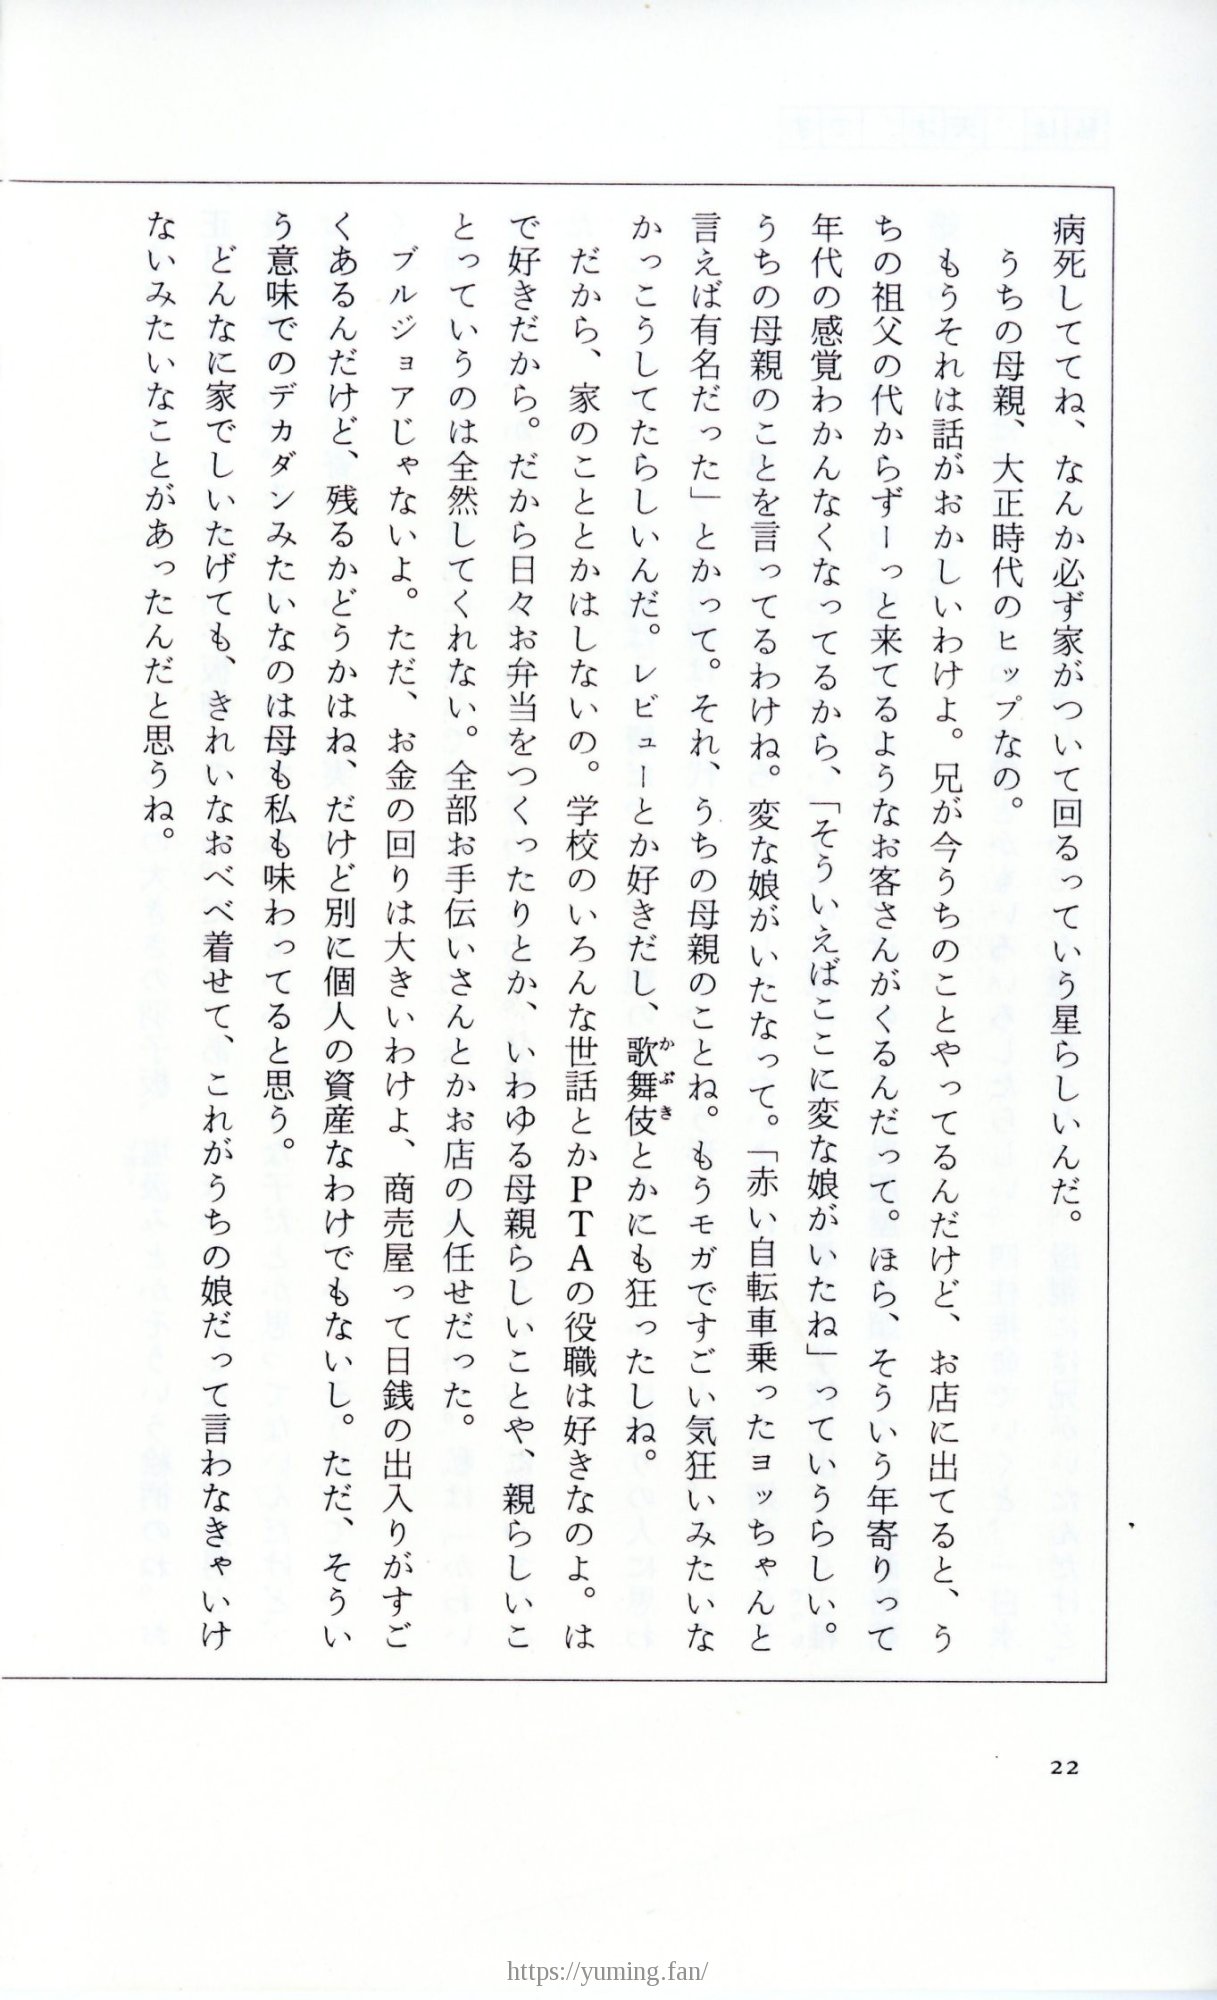 病死しててね、なんか必ず家がついて回るっていう星らしいんだ。
うちの母親、大正時代のヒップなの。
もうそれは話がおかしいわけよ。兄が今うちのことやってるんだけど、お店に出てると、う
ちの祖父の代からずーっと来てるようなお客さんがくるんだって。ほら、そういう年寄りって
年代の感覚わかんなくなってるから、「そういえばここに変な娘がいたね」っていうらしい。
うちの母親のことを言ってるわけね。変な娘がいたなって。「赤い自転車乗ったヨッちゃんと
言えば有名だった」とかって。それ、うちの母親のことね。もうモガですごい気狂いみたいな
かっこうしてたらしいんだ。レビューとか好きだし、歌舞伎とかにも狂ったしね。
かぶき
だから、家のこととかはしないの。学校のいろんな世話とかPTAの役職は好きなのよ。は
で好きだから。だから日々お弁当をつくったりとか、いわゆる母親らしいことや、親らしいこ
とっていうのは全然してくれない。全部お手伝いさんとかお店の人任せだった。
ブルジョアじゃないよ。ただ、お金の回りは大きいわけよ、商売屋って日銭の出入りがすご
くあるんだけど、残るかどうかはね、だけど別に個人の資産なわけでもないし。ただ、そうい
う意味でのデカダンみたいなのは母も私も味わってると思う。
どんなに家でしいたげても、きれいなおべべ着せて、これがうちの娘だって言わなきゃいけ
ないみたいなことがあったんだと思うね。
22
https://yuming.fan/